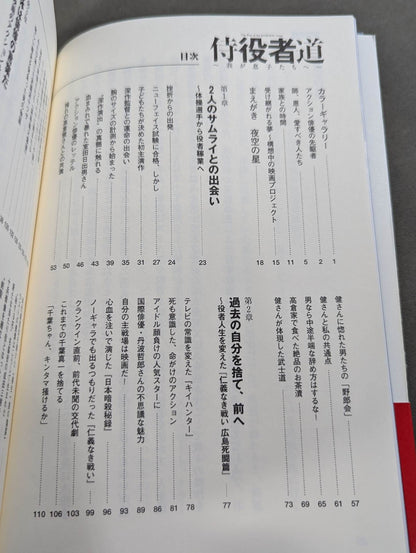 侍役者道
~我が息子たちへ~
目次
カラーギャラリー 1
アクション俳優の先駆者 2
師、恩人、愛すべき人たち 5
家族との時間 11
受け継がれる夢~構想中の映画プロジェクト 15
まえがき 夜空の星 18
第1章
2人のサムライとの出会い
~体操選手から役者稼業へ 23
挫折からの出発 24
ニューフェイス試験に合格、しかし 27
子どもたちが決めた初主演作 31
深作監督との運命の出会い 35
腕のサイズの計測から始まった 39
「深作演出」の真価に触れる 43
血まみれで暴れた室田日出男さん 46
アクション俳優のレッテル 50
憧れの高倉健さんとの共演 53
健さんに惚れた男たちの「野郎会」 57
健さんと私の共通点 61
男なら中途半端な辞め方はするな! 65
高倉家で食べた絶品のお茶漬 69
健さんが体現した武士道 73
第2章
過去の自分を捨て、前へ
~役者人生を変えた『仁義なき戦い 広島死闘篇』 77
テレビの常識を変えた『キイハンター』 78
死も意識した、命がけのアクション 81
アイドル顔負けの人気スターに 86
国際俳優・丹波哲郎さんの不思議な魅力 89
自分の主戦場は映画だ! 93
心血を注いで演じた『日本暗殺秘録』 96
ノーギャラでも出るつもりだった『仁義なき戦い』 99
クランクイン直前、前代未聞の交代劇 103
これまでの千葉真一を捨てる 106
「千葉ちゃん、キンタマ掻けるか」 110